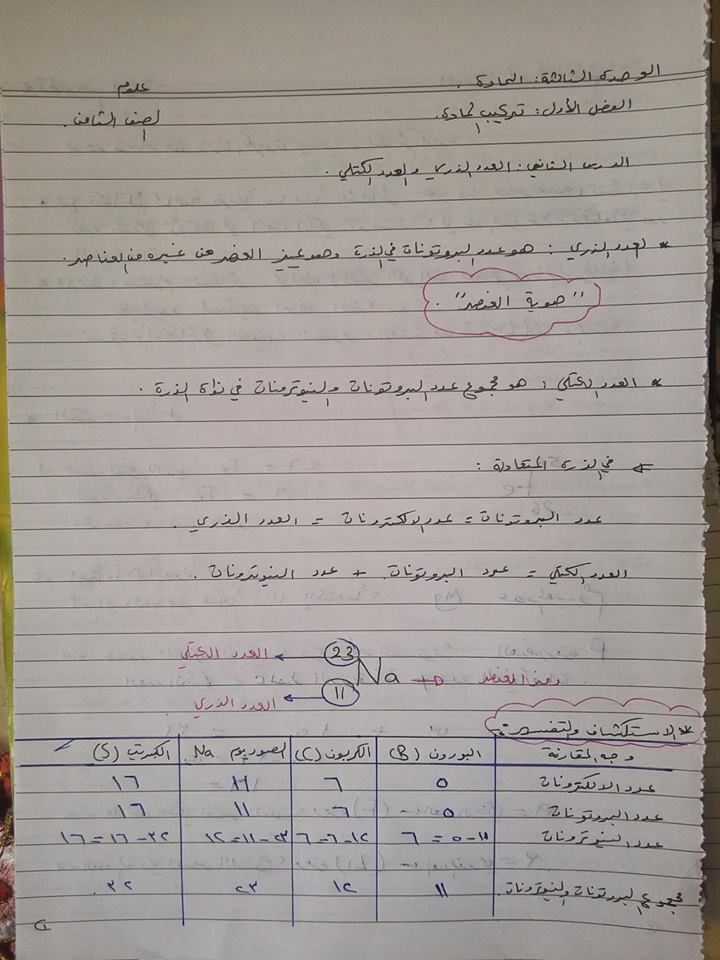 الوحدة الثالثة: المادة.
علوم
الفصل الأول: تركيب المادة.
الصف الثامن.
الدرس الثاني: العدد الذري والعدد الكتلي.
* العدد الذري: هو عدد البروتونات في الذرة وهو يميز العنصر عن غيره من العناصر.
"هوية العنصر".
* العدد الكتلي: هو مجموع عدد البروتونات والنيوترونات في نواة الذرة.
* في الذرة المتعادلة:
عدد البروتونات = عدد الالكترونات = العدد الذري.
العدد الكتلي = عدد البروتونات + عدد النيوترونات.
العدد الكتلي ← 23
Na → رمز العنصر
العدد الذري ← 11
* الاستكشاف والتفسير:
وجه المقارنة | البورون (B) | الكربون (C) | الصوديوم Na | الكبريت (S)
عدد الالكترونات | ٥ | ٦ | ١١ | ١٦
عدد البروتونات | ٥ | ٦ | ١١ | ١٦
عدد النيوترونات | ١١-٥=٦ | ١٢-٦=٦ | ٢٣-١١=١٢ | ٣٢-١٦=١٦
مجموع البروتونات والنيوترونات | ١١ | ١٢ | ٢٣ | ٣٢